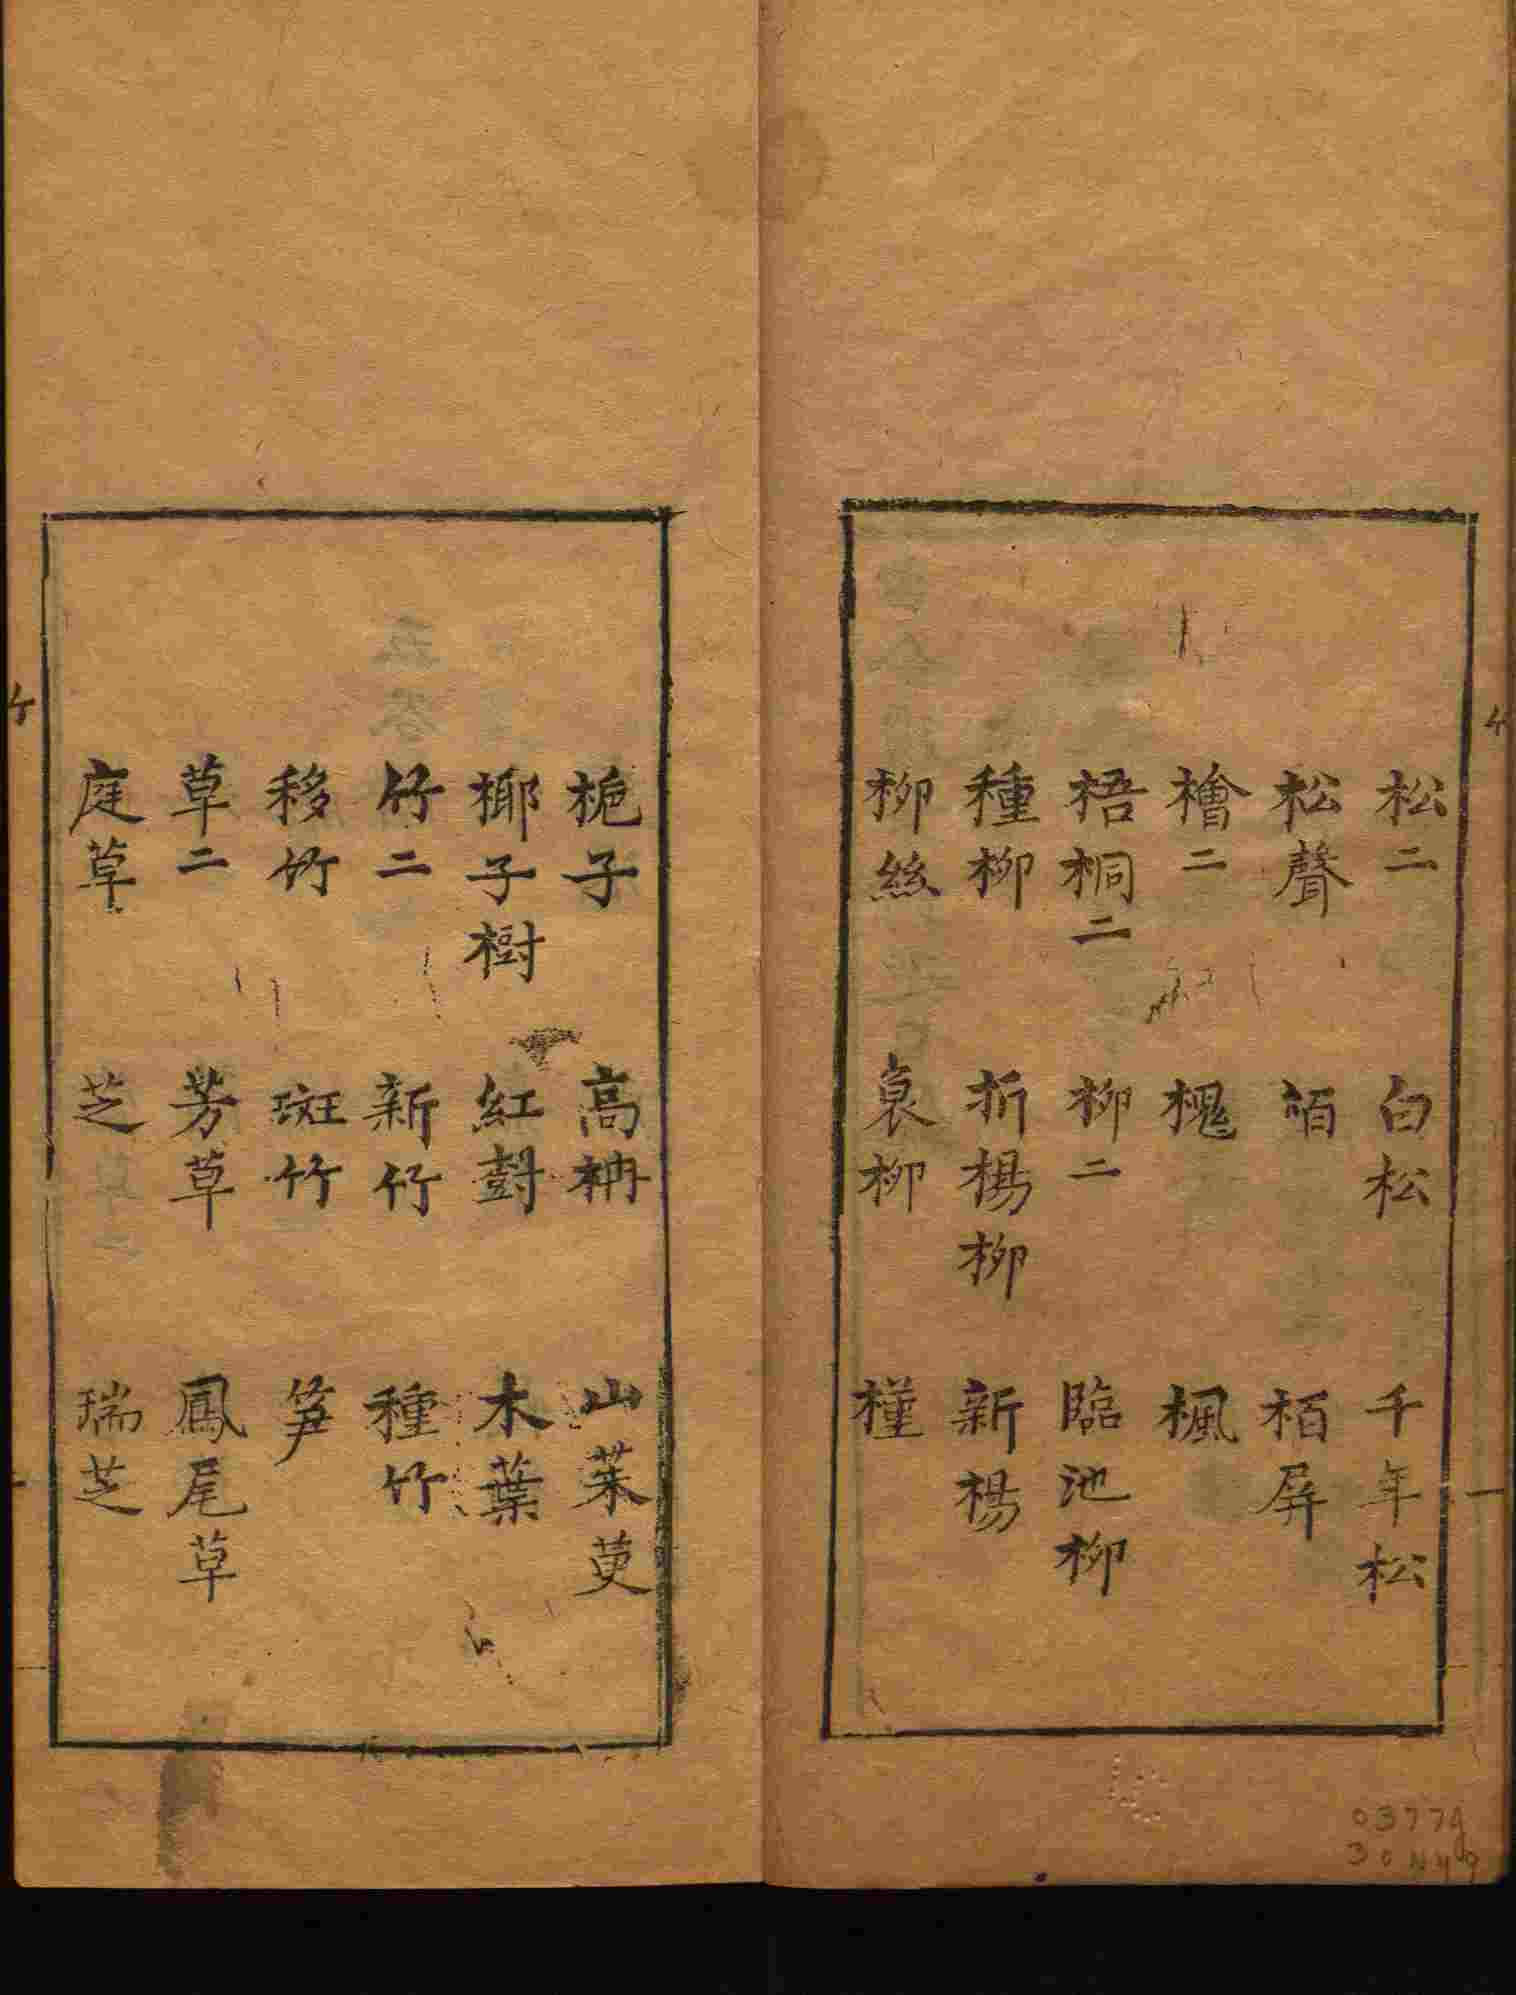 松二 白松 千年松
松聲 栢 栢屏
檜二 槐 楓
梧桐二 柳二 臨池柳
種柳 折楊柳 新楊
柳絲 衰柳 槿
梔子 高柟 山茱萸
椰子樹 紅樹 木葉
竹二 新竹 種竹
移竹 斑竹 笋
草二 芳草 鳳尾草
庭草 芝 瑞芝